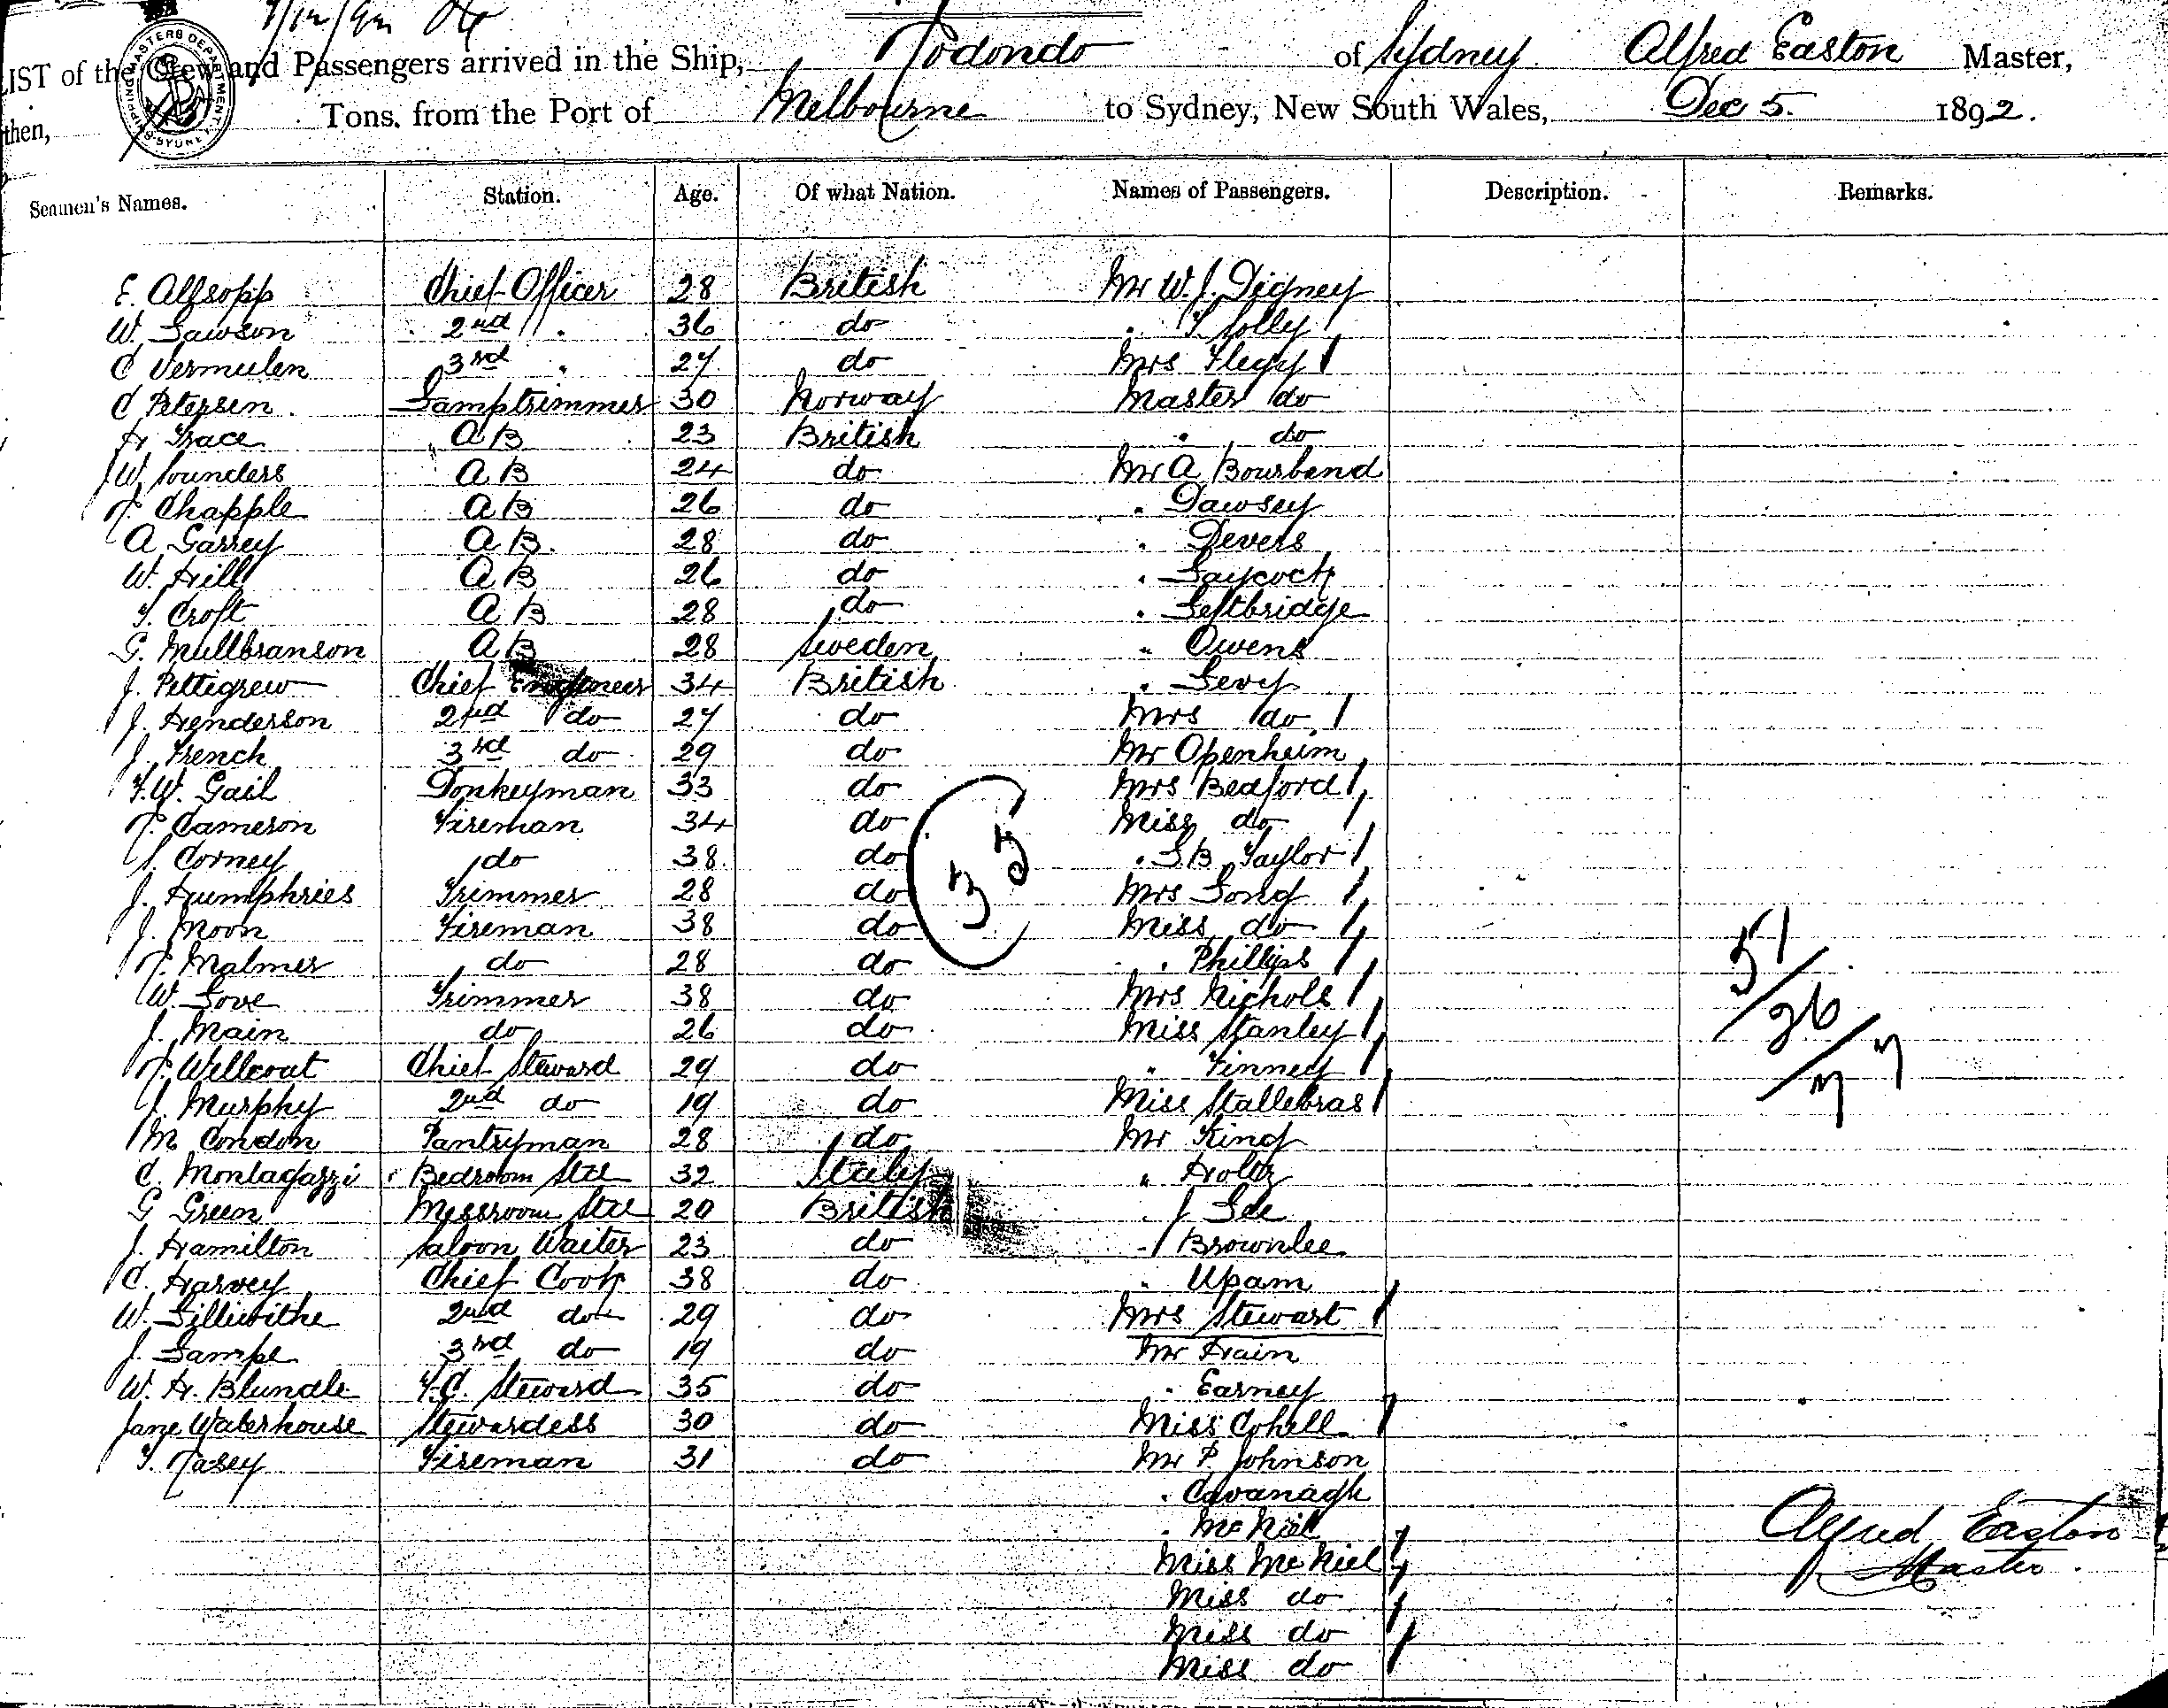 7/12/92
LIST of the Crew and Passengers arrived in the Ship, Rodondo of Sydney Alfred Easton Master,
then, Tons, from the Port of Melbourne to Sydney, New South Wales, Dec 5. 1892.
SHIPPING MASTERS DEPARTMENT SYDNEY
Seamen's Names. Station. Age. Of what Nation. Names of Passengers. Description. Remarks.
E. Allsopp Chief Officer 28 British Mr W. J. Digney
W. Lawson 2nd " 36 do " T Jolly
C Vermeulen 3rd " 27 do Mrs Flegg
C Petersen Lamptrimmer 30 Norway Master do
H. Grace AB 23 British " do
W. Sounders AB 24 do Mr A Bourband
T. Chapple AB 26 do " Dawsey
A Garrey AB. 28 do " Devers
W. Hill AB 26 do " Laycock
T. Croft AB 28 do " Leftbridge
G. Mullbranson AB 28 Sweden " Owens
J. Pettegrew Chief Engineer 34 British " Levy
J. Henderson 2nd do 27 do Mrs do
J. French 3rd do 29 do Mr Openheim
F. W. Gail Donkeyman 33 do Mrs Bedford
T. Cameron Fireman 34 do Miss do
S. Corney do 38 do " L B Taylor
J. Humphries Trimmer 28 do Mrs Long
J. Moon Fireman 38 do Miss do
T. Malmer do 28 do " Phillips
W. Love Trimmer 38 do Mrs Nichols
J. Main do 26 do Miss Stanley
T. Wellcoat Chief Steward 29 do " Finney
J. Murphy 2nd do 19 do Miss Stallebras
M Condon Pantryman 28 do Mr King
C. Montagazzi Bedroom Std 32 Italy " Holtz
G Green Messroom Std 20 British " J Lee
J. Hamilton Saloon Waiter 23 do " Brownlee
C. Harvey Chief Cook 38 do " Upam
W. Lilliwithe 2nd do 29 do Mrs Stewart
J. Sample 3rd do 19 do Mr Hain
W. H. Blundle F.C. Steward 35 do " Earney
Jane Waterhouse Stewardess 30 do Miss Cohell
T. Casey Fireman 31 do Mr P. Johnson
" Cavanagh
" McNiel
Miss McNiel
Miss do
Miss do
Miss do
35
51/26/77
Alfred Easton
Master.